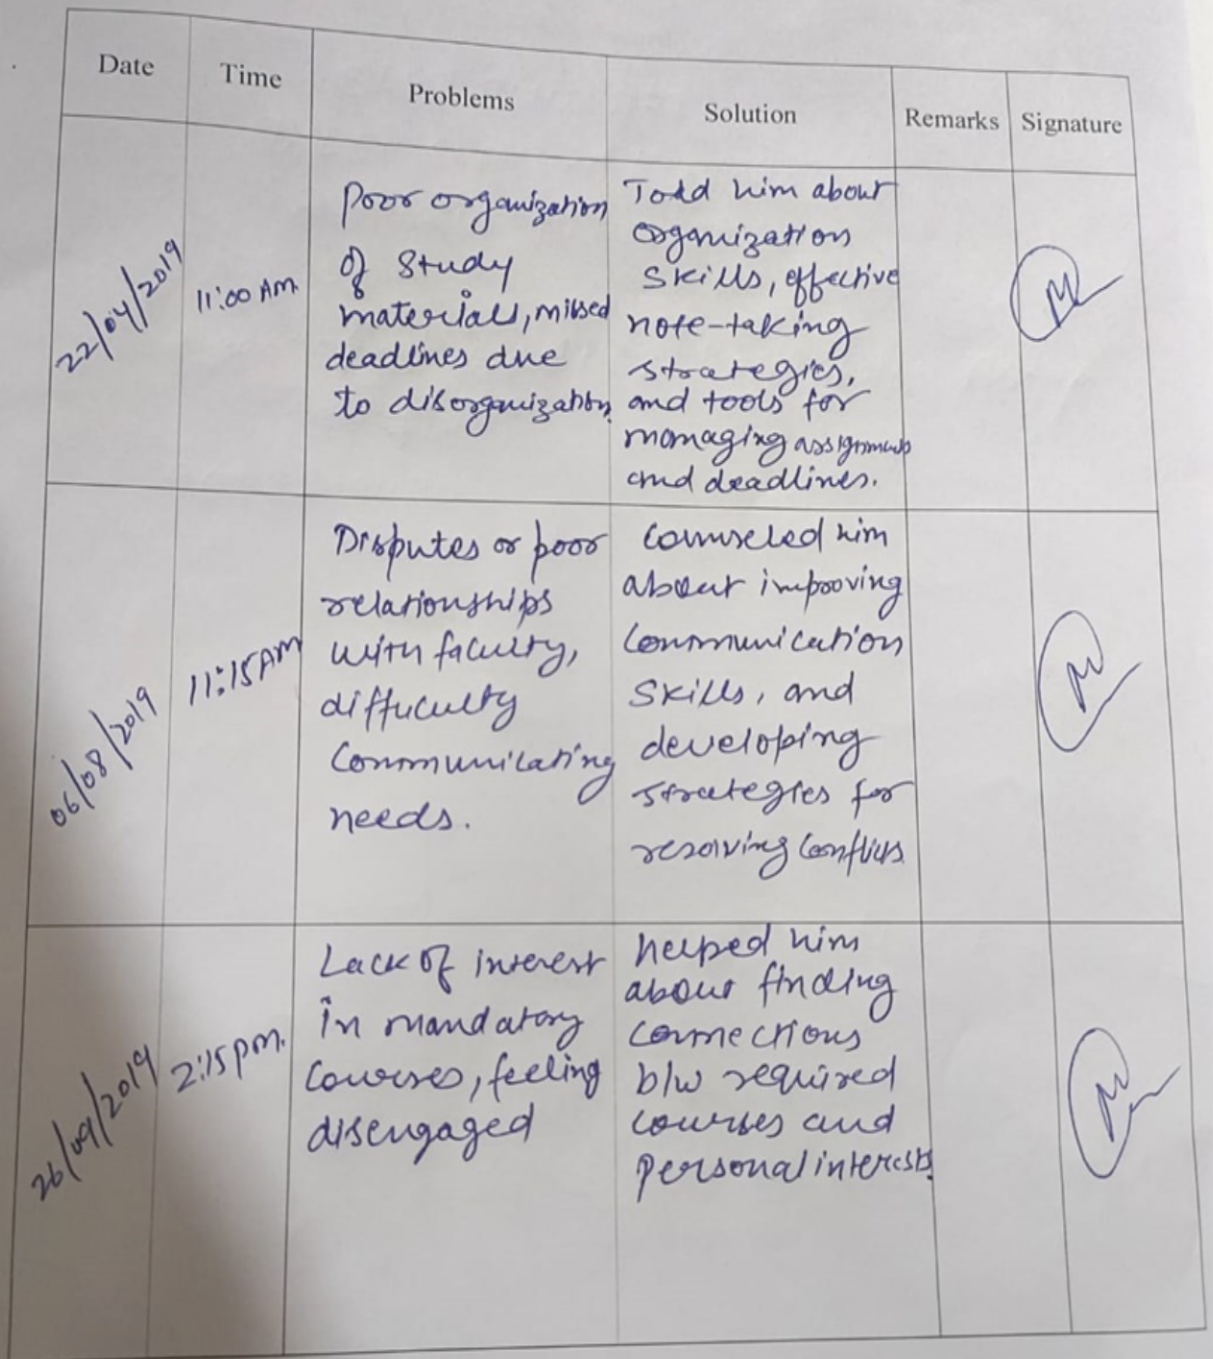 Date Time Problems Solution Remarks Signature
22/04/2019
11:00 AM
Poor organization
of study
materials, missed
deadlines due
to disorganization.
Told him about
organization
skills, effective
note-taking
strategies,
and tools for
managing assignments
and deadlines.
06/08/2019
11:15 AM
Disputes or poor
relationships
with faculty,
diffuculty
communicating
needs.
Counseled him
about improving
communication
skills, and
developing
strategies for
resolving conflicts
26/09/2019
2:15 pm.
Lack of interest
in mandatory
courses, feeling
disengaged
helped him
about finding
connections
b/w required
courses and
personal interests.